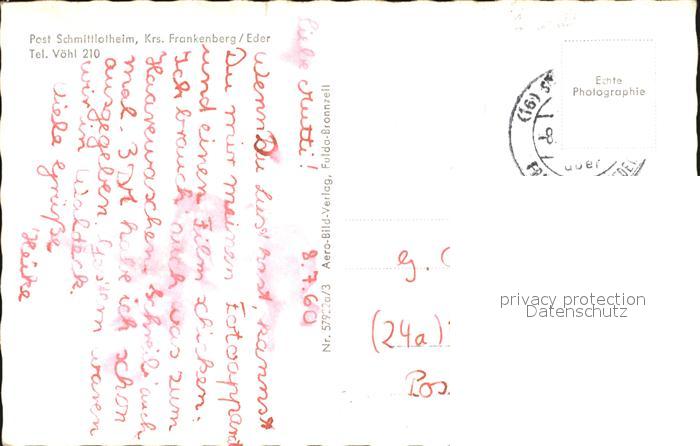 Post Schmittlotheim, Krs. Frankenberg/Eder
Tel. Vöhl 210
Liebe Mutti!
8.7.60
Wenn Du Lust hast, kannst
Du mir meinen Fotoapparat
und einen Film schicken.
Ich brauch auch was zum
Haarewaschen. Schreib auch
mal. 3 DM habe ich schon
ausgegeben. Gestern waren
wir in Waldeck.
Viele Grüße
Heike
Nr. 57922a/3 Aero-Bild-Verlag, Fulda-Bronnzell
Echte
Photographie
(16)
über
(24a)
privacy protection
Datenschutz